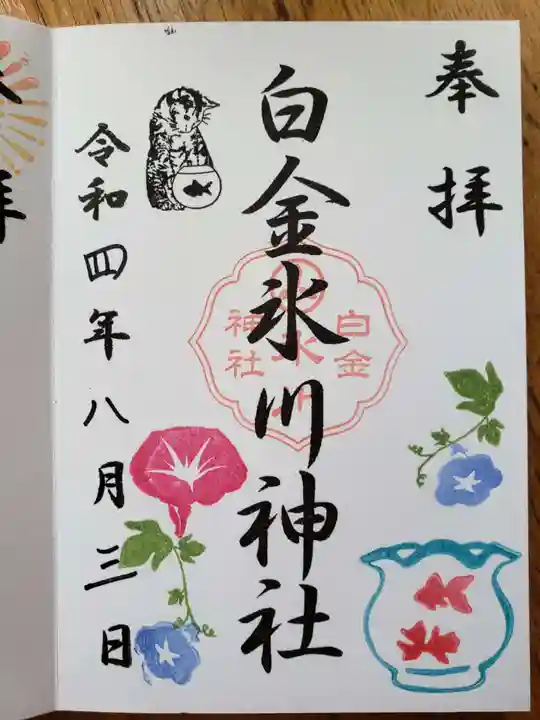 奉拝
白金氷川神社
白金
氷川
神社
令和四年八月三日
拝